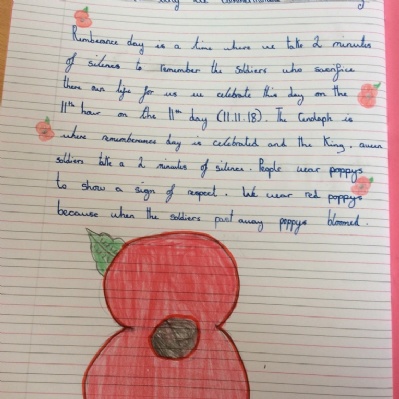 Rembeance day is a time where we take 2 minutes
of silence to remember the soldiers who sacrifice
there own life for us we celebrate this day on the
11th hour on the 11th day (11.11.18). The Cenotaph is
where rememberance day is celebrated and the King, queen
soldiers take a 2 minutes of silence. People wear poppys
to show a sign of respect. We wear red poppys
because when the soldiers past away poppys bloomed.